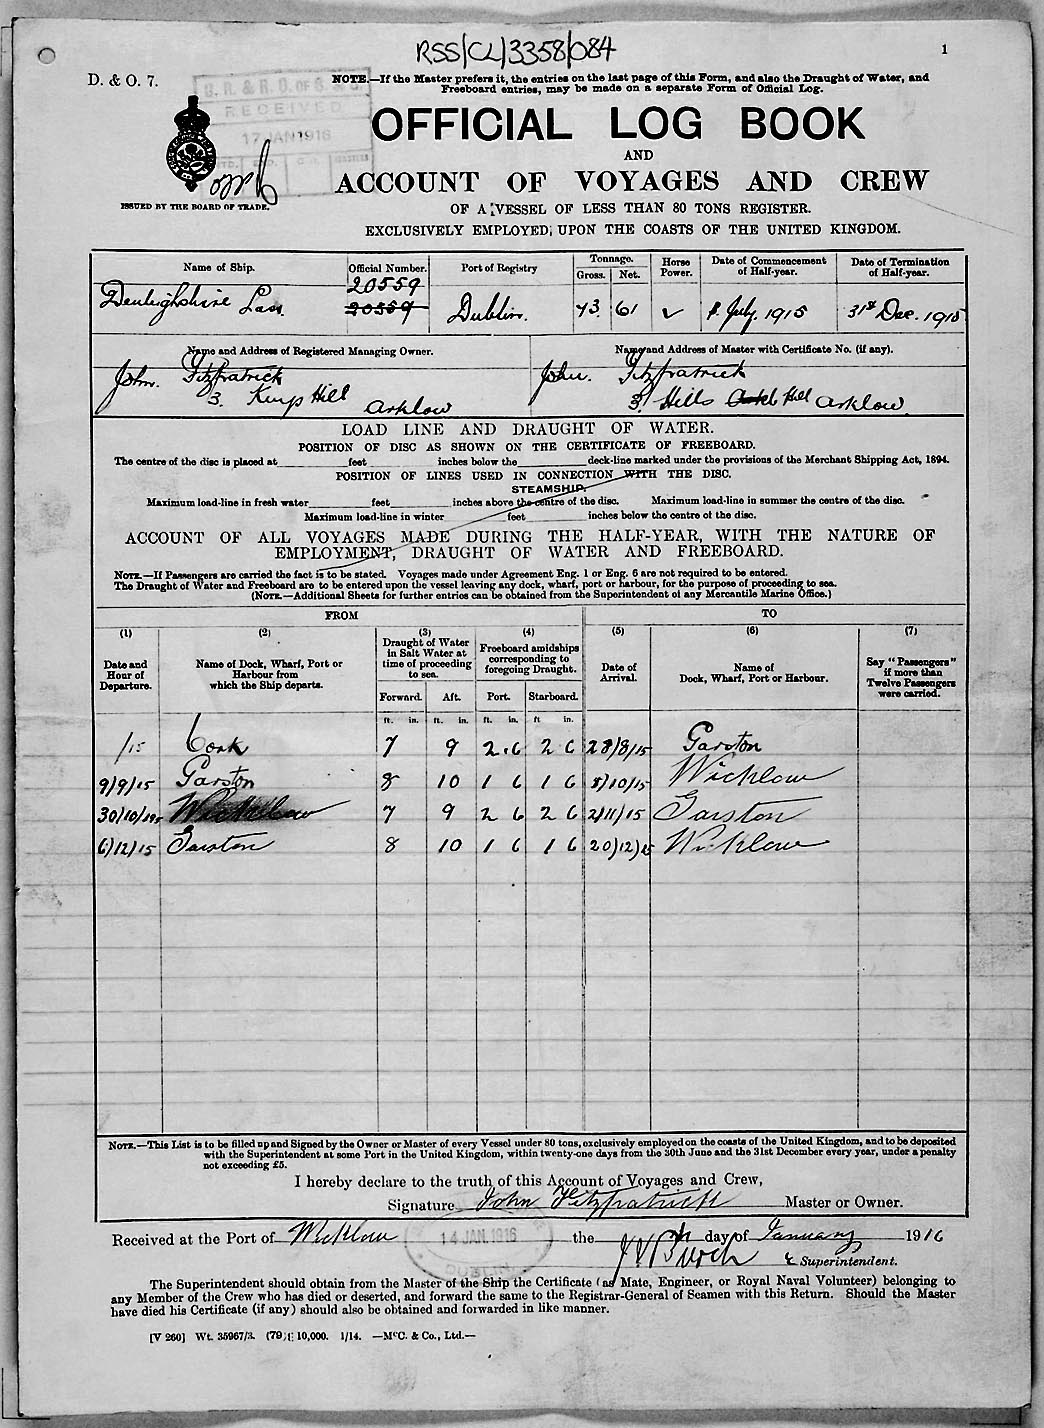 RSS/CL/3358/084
1
D. & O. 7.
NOTE.—If the Master prefers it, the entries on the last page of this Form, and also the Draught of Water, and
Freeboard entries, may be made on a separate Form of Official Log.
RECEIVED
17 JAN 1916
OFFICIAL LOG BOOK
AND
ACCOUNT OF VOYAGES AND CREW
ISSUED BY THE BOARD OF TRADE.
OF A VESSEL OF LESS THAN 80 TONS REGISTER.
EXCLUSIVELY EMPLOYED, UPON THE COASTS OF THE UNITED KINGDOM.
Name of Ship. Official Number. Port of Registry Tonnage. Gross. Net. Horse Power. Date of Commencement of Half-year. Date of Termination of Half-year.
20559
Denbighshire Lass 20559 Dublin. 73. 61 1 July. 1915 31st Dec. 1915
Name and Address of Registered Managing Owner. Name and Address of Master with Certificate No. (if any).
John. Fitzpatrick John. Fitzpatrick
3. Kings Hill Arklow 3, Hills Hill Arklow.
LOAD LINE AND DRAUGHT OF WATER.
POSITION OF DISC AS SHOWN ON THE CERTIFICATE OF FREEBOARD.
The centre of the disc is placed at feet inches below the deck-line marked under the provisions of the Merchant Shipping Act, 1894.
POSITION OF LINES USED IN CONNECTION WITH THE DISC.
STEAMSHIP.
Maximum load-line in fresh water feet inches above the centre of the disc. Maximum load-line in summer the centre of the disc.
Maximum load-line in winter feet inches below the centre of the disc.
ACCOUNT OF ALL VOYAGES MADE DURING THE HALF-YEAR, WITH THE NATURE OF
EMPLOYMENT, DRAUGHT OF WATER AND FREEBOARD.
NOTE.—If Passengers are carried the fact is to be stated. Voyages made under Agreement Eng. 1 or Eng. 6 are not required to be entered.
The Draught of Water and Freeboard are to be entered upon the vessel leaving any dock, wharf, port or harbour, for the purpose of proceeding to sea.
(NOTE.—Additional Sheets for further entries can be obtained from the Superintendent of any Mercantile Marine Office.)
FROM TO
(1) (2) (3) (4) (5) (6) (7)
Date and Hour of Departure. Name of Dock, Wharf, Port or Harbour from which the Ship departs. Draught of Water in Salt Water at time of proceeding to sea. Freeboard amidships corresponding to foregoing Draught. Date of Arrival. Name of Dock, Wharf, Port or Harbour. Say "Passengers" if more than Twelve Passengers were carried.
Forward. Aft. Port. Starboard.
ft. in. ft. in. ft. in. ft in.
/15 Cork 7 9 2.6 2 6 28/8/15 Garston
9/9/15 Garston 8 10 1 6 1 6 8/10/15 Wicklow
30/10/1915 Wicklow 7 9 2 6 2 6 2/11/15 Garston
6/12/15 Garston 8 10 1 6 1 6 20/12/15 Wicklow
NOTE.—This List is to be filled up and Signed by the Owner or Master of every Vessel under 80 tons, exclusively employed on the coasts of the United Kingdom, and to be deposited
with the Superintendent at some Port in the United Kingdom, within twenty-one days from the 30th June and the 31st December every year, under a penalty
not exceeding £5.
I hereby declare to the truth of this Account of Voyages and Crew,
Signature John Fitzpatrick Master or Owner.
Received at the Port of Wicklow 14 JAN. 1916 DUBLIN the day of January 1916
Superintendent.
The Superintendent should obtain from the Master of the Ship the Certificate (as Mate, Engineer, or Royal Naval Volunteer) belonging to
any Member of the Crew who has died or deserted, and forward the same to the Registrar-General of Seamen with this Return. Should the Master
have died his Certificate (if any) should also be obtained and forwarded in like manner.
[V 260] Wt. 35967/3. (79) 10,000. 1/14. —McC. & Co., Ltd.—